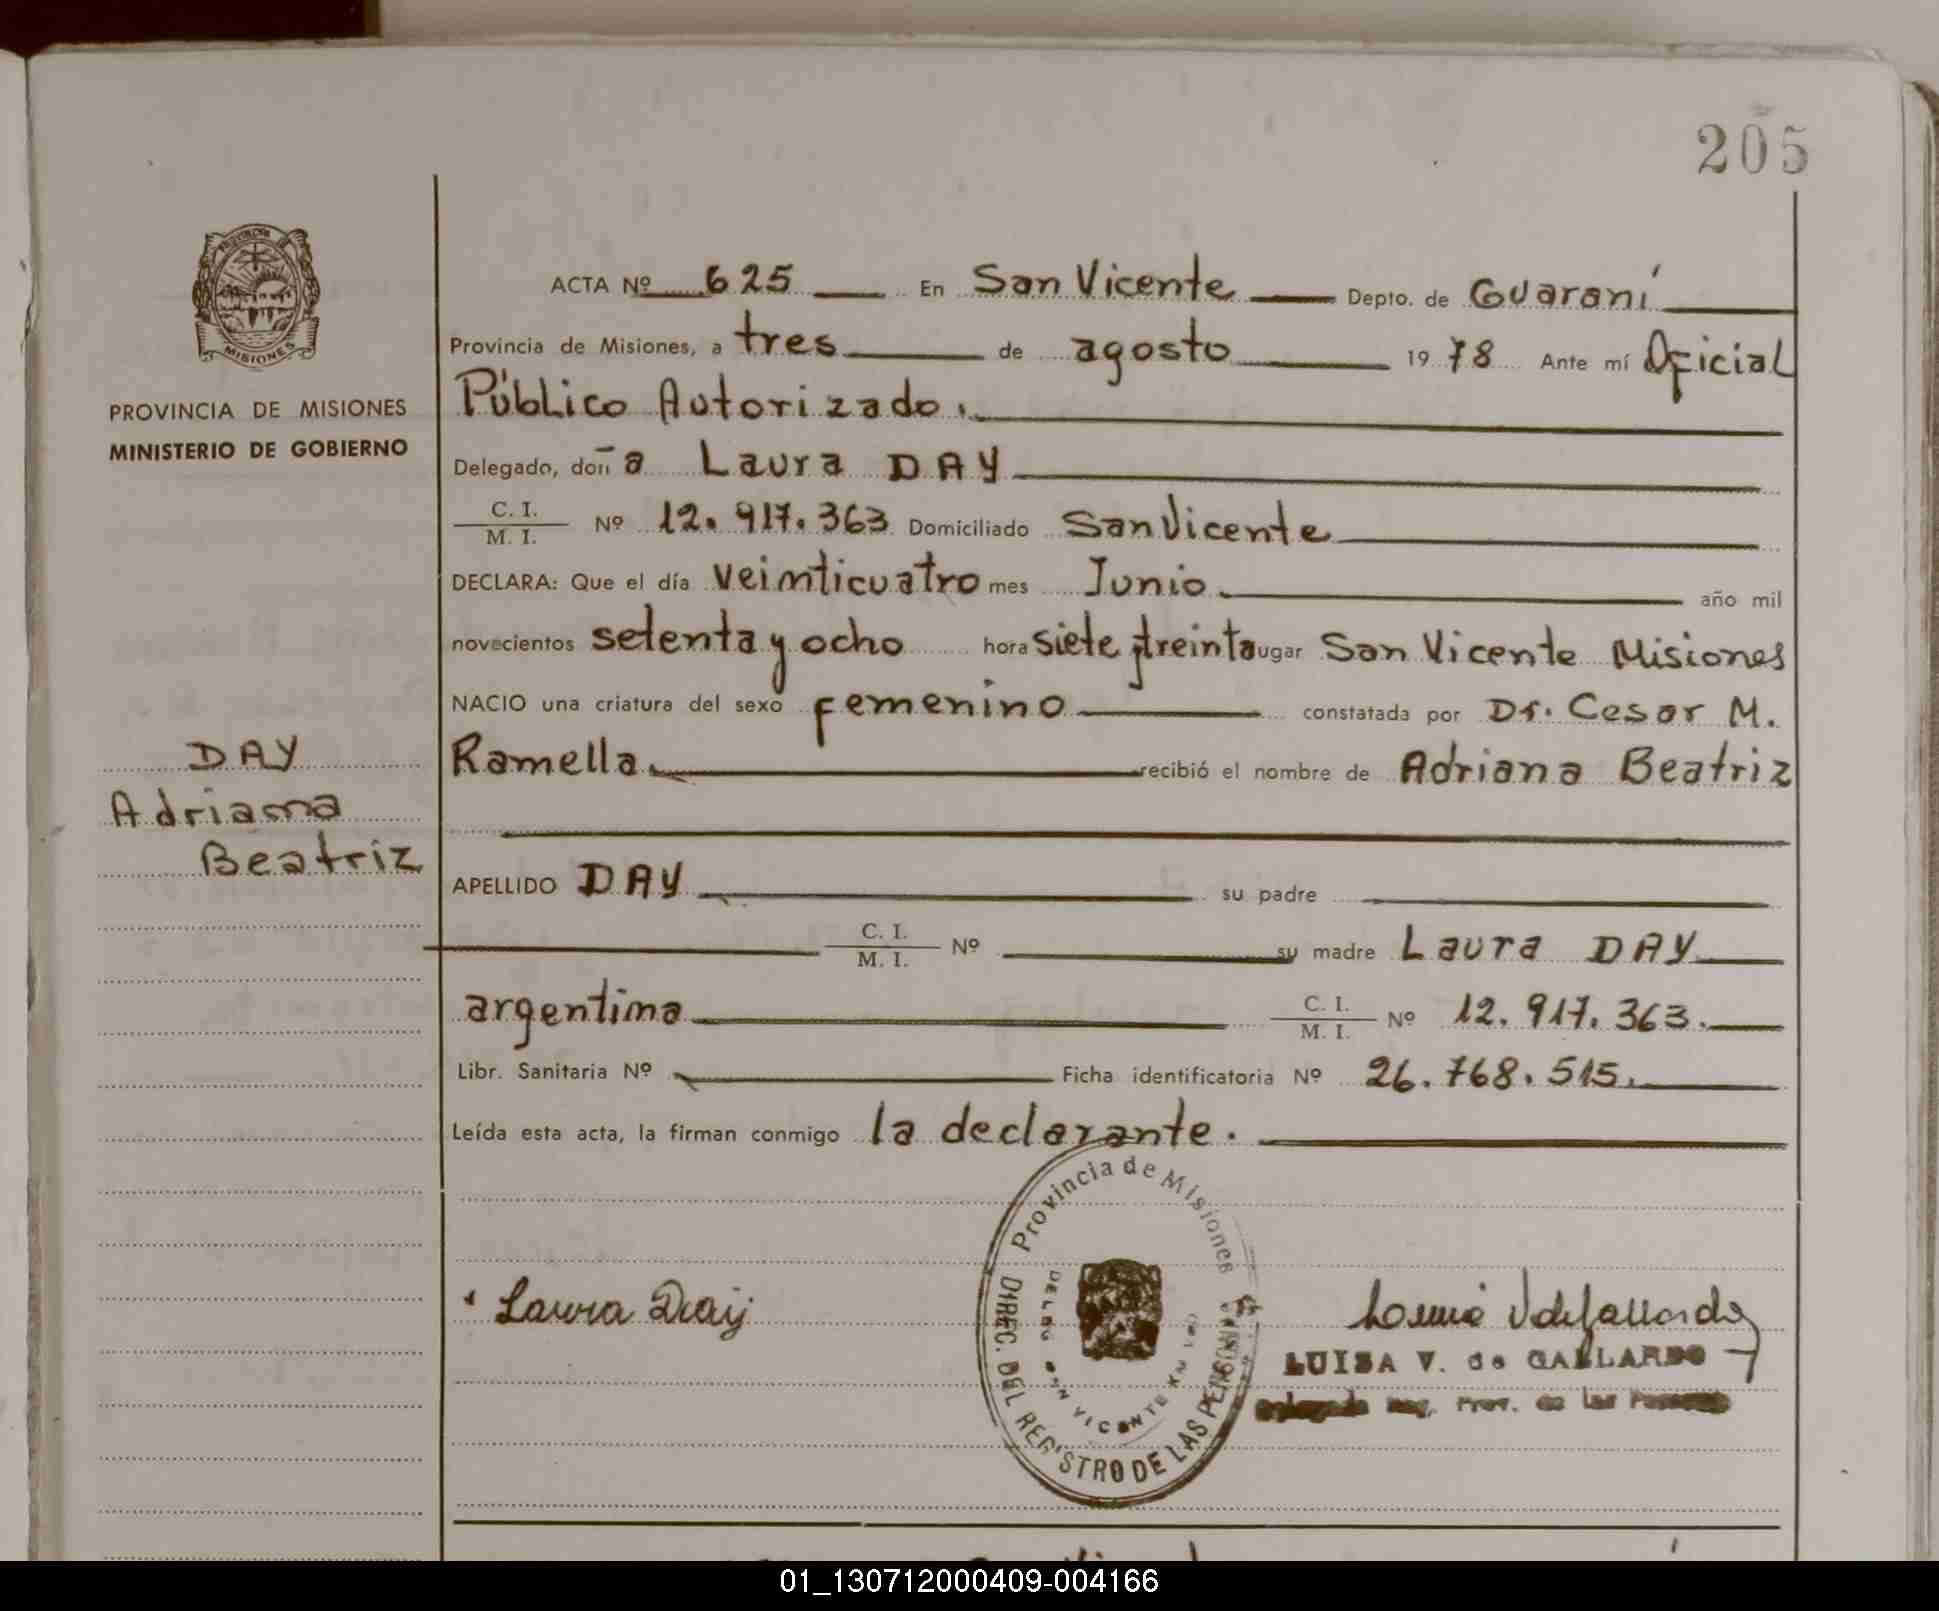 205
PROVINCIA DE MISIONES
MINISTERIO DE GOBIERNO
ACTA Nº 625 En San Vicente Depto. de Guaraní
Provincia de Misiones, a tres de agosto 1978 Ante mí Oficial
Público Autorizado.
Delegado, doña Laura DAY
C. I. / M. I. Nº 12.917.363 Domiciliado San Vicente
DECLARA: Que el día veinticuatro mes Junio año mil
novecientos setenta y ocho hora siete y treinta lugar San Vicente Misiones
NACIO una criatura del sexo femenino constatada por Dr. Cesar M.
Ramella recibió el nombre de Adriana Beatriz
DAY
Adriana
Beatriz
APELLIDO DAY su padre
C. I. / M. I. Nº su madre Laura DAY
argentina C. I. / M. I. Nº 12.917.363.
Libr. Sanitaria Nº Ficha identificatoria Nº 26.768.515.
Leída esta acta, la firman conmigo la declarante.
Provincia de Misiones
DIREC. DEL REGISTRO DE LAS PERSONAS
VICENTE
Laura Day
LUISA V. de GALLARDO
Reg. Prov. de las Personas
01_130712000409-004166